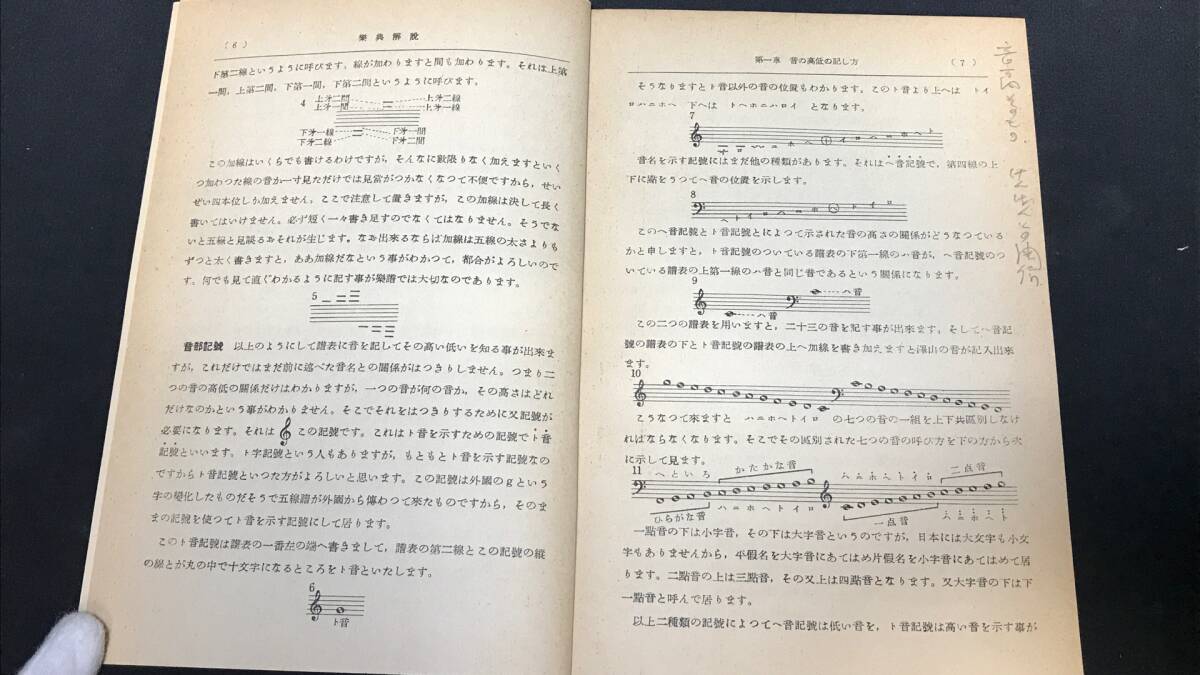 ( 6 )
樂典解說
下第二線というように呼びます。線が加わりますと間も加わります。それは上第
一間，上第二間，下第一間，下第二間というように呼びます。
4
上第二間 上第二線
上第一間 上第一線
下第一線 下第一間
下第二線 下第二間
この加線はいくらでも書けるわけですが，そんなに際限りなく加えますといく
つ加わつた線の音か一寸見ただけでは見當がつかなくなつて不便ですから，せい
ぜい四本位しか加えません。ここで注意して置きますが，この加線は決して長く
書いてはいけません。必ず短く一々書き足すのでなくてはなりません。そうでな
いと五線と見誤るおそれが生じます。なお出來るならば加線は五線の太さよりも
ずつと太く書きますと，ああ加線だなという事がわかつて，都合がよろしいので
す。何でも見て直ぐわかるように記す事が樂譜では大切なのであります。
5
音部記號 以上のようにして譜表に音を記してその高い低いを知る事が出來ま
すが，これだけではまだ前に述べた音名との關係がはつきりしません。つまり二
つの音の高低の關係だけはわかりますが，一つの音が何の音か，その高さはどれ
だけなのかという事がわかりません。そこでそれをはつきりするために又記號が
必要になります。それは この記號です。これはト音を示すための記號でト音
記號といいます。ト字記號という人もありますが，もともとト音を示す記號なの
ですからト音記號といつた方がよろしいと思います。この記號は外國のｇという
字の變化したものだそうで五線譜が外國から傳わつて來たものですから，そのま
まの記號を使つてト音を示す記號にして居ります。
このト音記號は譜表の一番左の端へ書きまして，譜表の第二線とこの記號の縱
の線とが丸の中で十文字になるところをト音といたします。
6
ト音
第一章 音の高低の記し方
( 7 )
そうなりますとト音以外の音の位置もわかります。このト音より上へは トイ
ロハニホヘ 下へは トヘホニハロイ となります。
7
イ ロ ハ ニ ホ ヘ ト イ ロ ハ ニ ホ ヘ ト
音名を示す記號にはまだ他の種類があります。それはヘ音記號で，第四線の上
下に點をうつてヘ音の位置を示します。
8
ヘ ト イ ロ ハ ニ ホ ヘ ト イ ロ イ
このヘ音記號とト音記號とによつて示された音の高さの關係がどうなつている
かと申しますと，ト音記號のついている譜表の下第一線のハ音が，ヘ音記號のつ
いている譜表の上第一線のハ音と同じ音であるという關係になります。
9
ハ音
ハ音
この二つの譜表を用いますと，二十三の音を記す事が出來ます。そしてヘ音記
號の譜表の下とト音記號の譜表の上へ加線を書き加えますと澤山の音が記入出來
ます。
10
こうなつて來ますと ハニホヘトイロ の七つの音の一組を上下共區別しなけ
ればならなくなります。そこでその區別された七つの音の呼び方を下の方から次
に示して見ます。
11
へといろ
かたかな音
ハニホヘトイロ
二点音
ひらがな音
ハニホヘトイロ
一点音
ハニホヘト
一點音の下は小字音，その下は大字音というのですが，日本には大文字も小文
字もありませんから，平假名を大字音にあてはめ片假名を小字音にあてはめて居
ります。二點音の上は三點音，その又上は四點音となります。又大字音の下は下
一點音と呼んで居ります。
以上二種類の記號によつてヘ音記號は低い音を，ト音記號は高い音を示す事が